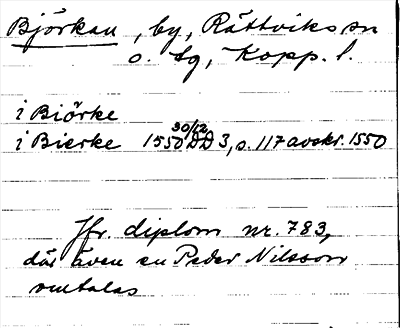 Björkan, by, Rättviks sn
o. tg, Kopp. l.
i Biörke
i Bierke 1550 30/12 DD 3, s. 117 avskr. 1550
Jfr. diplom nr. 783,
där även en Peder Nilsson
omtalas